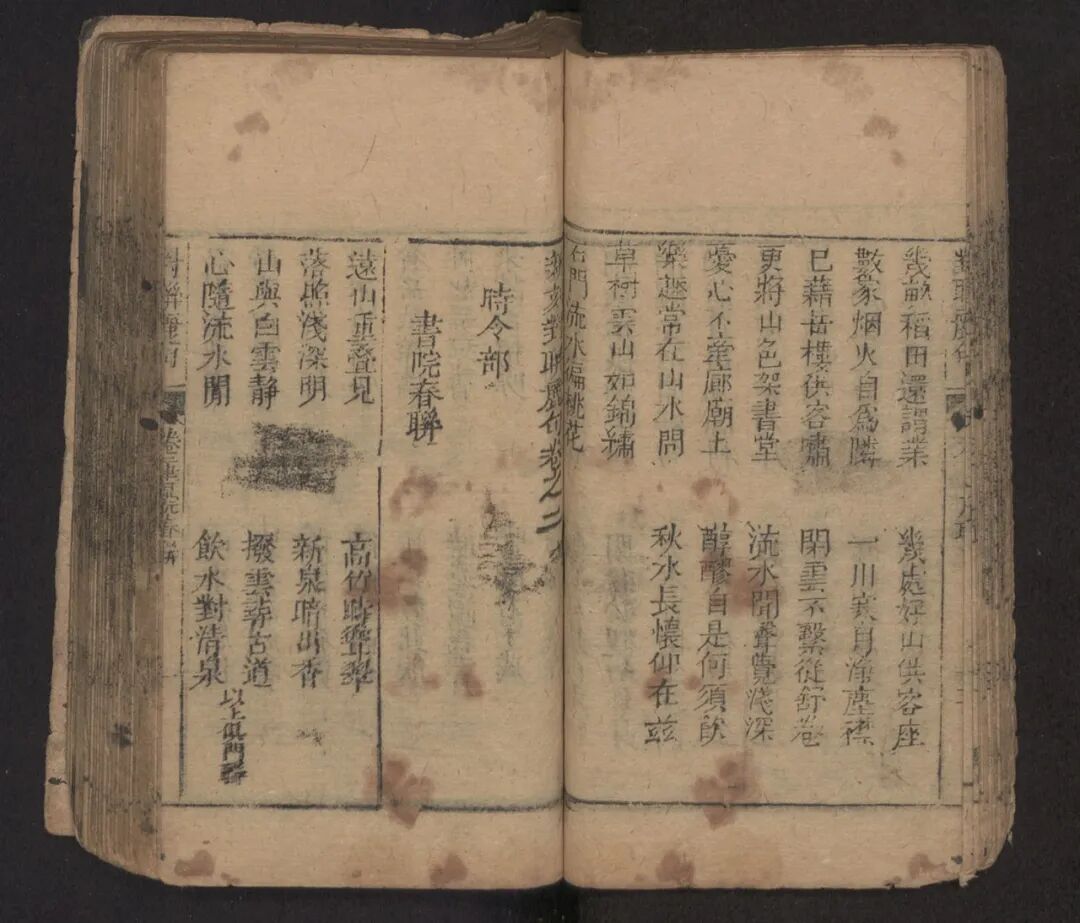 幾畝稻田還謂業
幾處好山供客座
數家烟火自為隣
一川寅月淨塵襟
已藉岳樓供客嘯
閑雲不繫從舒卷
更將山色架書堂
流水聞聲覺淺深
憂心不奎廊廟上
醇醪自是何須飲
樂趣常在山水間
秋水長懷仰在茲
草樹雲山如錦繡
石門流水徧桃花
對聯麗句卷之二
時令部
書院春聯
遠山重叠見
高竹時聳翠
落照淺深明
新泉暗出香
山與白雲靜
撥雲尋古道
心隨流水閒
飲水對清泉
以上
對聯麗句
卷二